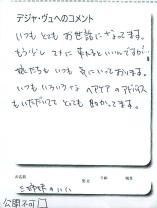 デジャ・ヴュへのコメント
いつも とても お世話になってます。
もう少し マメに 来れると いいんですが…
娘たちも いつも 気に入っております。
いつも いろいろな ヘアケア のアドバイス
も いただいて とても 助かってます。
お名前
三姉妹の
公開不可